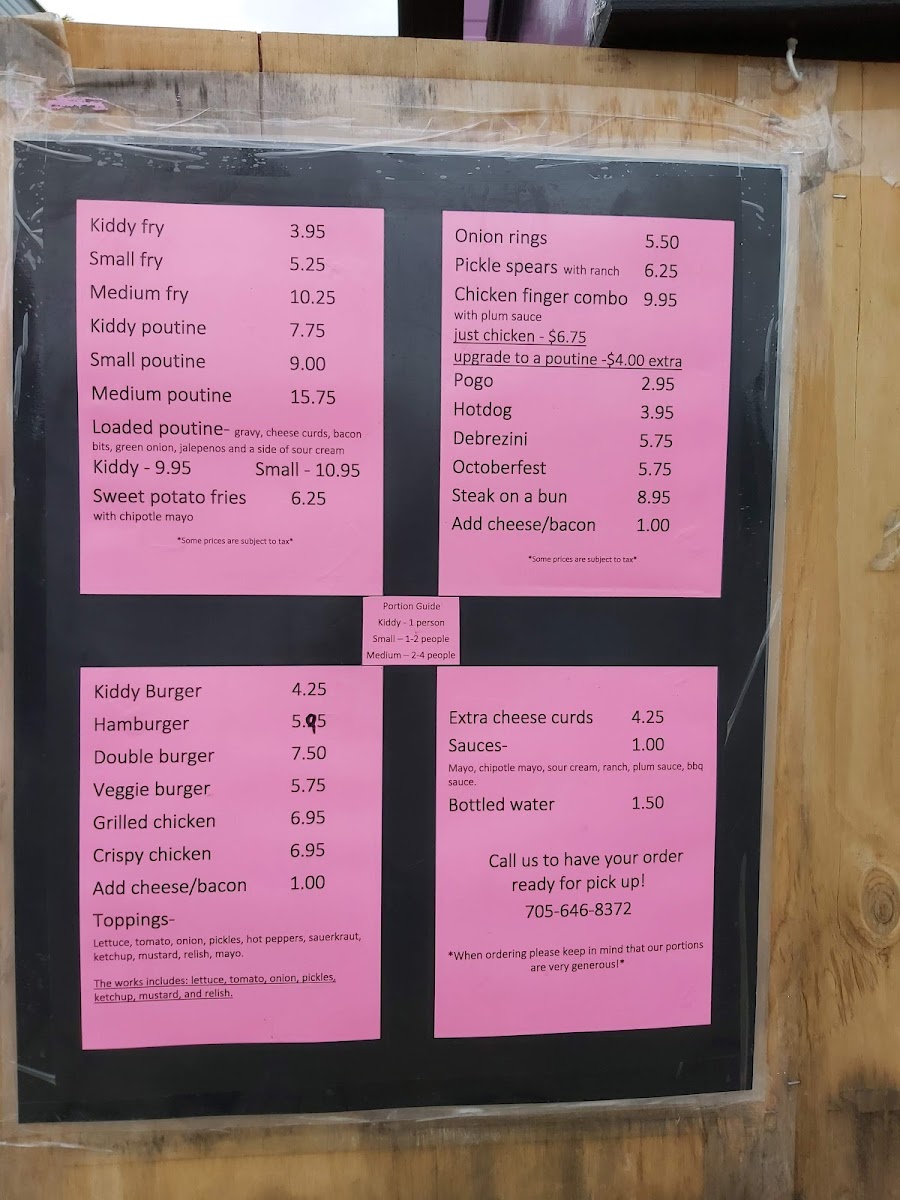 Kiddy fry 3.95
Small fry 5.25
Medium fry 10.25
Kiddy poutine 7.75
Small poutine 9.00
Medium poutine 15.75
Loaded poutine- gravy, cheese curds, bacon
bits, green onion, jalepenos and a side of sour cream
Kiddy - 9.95 Small - 10.95
Sweet potato fries 6.25
with chipotle mayo
*Some prices are subject to tax*
Onion rings 5.50
Pickle spears with ranch 6.25
Chicken finger combo 9.95
with plum sauce
just chicken - $6.75
upgrade to a poutine -$4.00 extra
Pogo 2.95
Hotdog 3.95
Debrezini 5.75
Octoberfest 5.75
Steak on a bun 8.95
Add cheese/bacon 1.00
*Some prices are subject to tax*
Portion Guide
Kiddy - 1 person
Small – 1-2 people
Medium – 2-4 people
Kiddy Burger 4.25
Hamburger 5.95
Double burger 7.50
Veggie burger 5.75
Grilled chicken 6.95
Crispy chicken 6.95
Add cheese/bacon 1.00
Toppings-
Lettuce, tomato, onion, pickles, hot peppers, sauerkraut,
ketchup, mustard, relish, mayo.
The works includes: lettuce, tomato, onion, pickles,
ketchup, mustard, and relish.
Extra cheese curds 4.25
Sauces- 1.00
Mayo, chipotle mayo, sour cream, ranch, plum sauce, bbq
sauce.
Bottled water 1.50
Call us to have your order
ready for pick up!
705-646-8372
*When ordering please keep in mind that our portions
are very generous!*